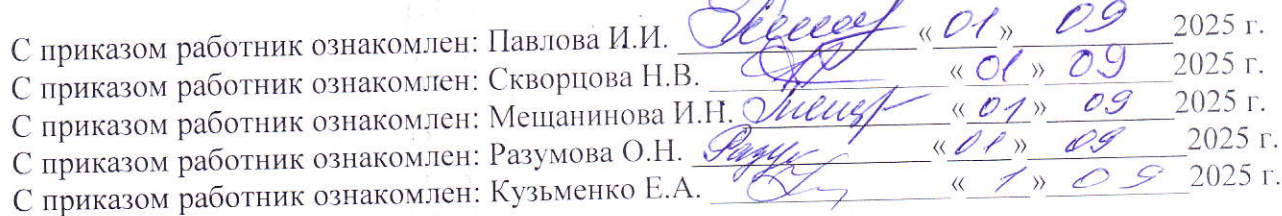 С приказом работник ознакомлен: Павлова И.И. «01» 09 2025 г.
С приказом работник ознакомлен: Скворцова Н.В. «01» 09 2025 г.
С приказом работник ознакомлен: Мещанинова И.Н. «01» 09 2025 г.
С приказом работник ознакомлен: Разумова О.Н. «01» 09 2025 г.
С приказом работник ознакомлен: Кузьменко Е.А. «1» 09 2025 г.